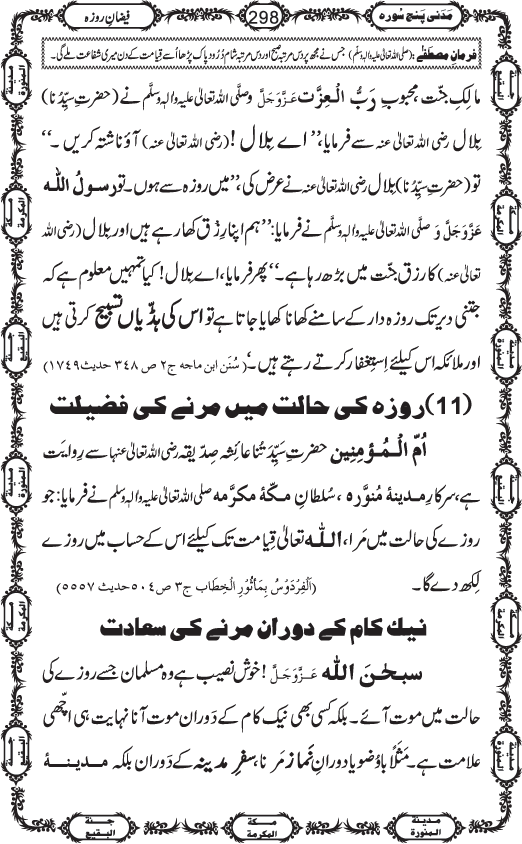 مَدَنی پنج سورہ
298
فیضانِ روزہ
فرمانِ مصطَفٰے : (صلی اللہ تعالیٰ علیہ والہٖ وسلم) جس نے مجھ پر دس مرتبہ صبح اور دس مرتبہ شام دُرودِ پاک پڑھا اُسے قیامت کے دن میری شفاعت ملے گی۔
مالِکِ جنّت، محبوبِ رَبُّ الْعِزَّت عَزَّوَجَلَّ وصلَّی اللہ تعالیٰ علیہ والہٖ وسلَّم نے (حضرتِ سیِّدُنا)
بِلال رضی اللہ تعالیٰ عنہ سے فرمایا، ’’اے بِلال ! (رضی اللہ تعالیٰ عنہ) آؤ ناشتہ کریں ۔‘‘
تو (حضرتِ سیِّدُنا) بِلال رضی اللہ تعالیٰ عنہ نے عرض کی، ’’میں روزہ سے ہوں۔ تو رسولُ اللہ
عَزَّوَجَلَّ وَ صلَّی اللہ تعالیٰ علیہ والہٖ وسلَّم نے فرمایا: ’’ہم اپنا رِزْق کھا رہے ہیں اور بِلال (رضی اللہ
تعالیٰ عنہ) کا رزق جنّت میں بڑھ رہا ہے۔‘‘ پھر فرمایا، اے بِلال ! کیا تمہیں معلوم ہے کہ
جتنی دیر تک روزہ دار کے سامنے کھانا کھایا جاتا ہے تو اس کی ہڈّیاں تسبیح کرتی ہیں
اور ملائکہ اس کیلئے اِستِغفار کرتے رہتے ہیں ۔‘‘ (سُنَن ابن ماجہ ج۲ ص ۳۴۸ حدیث ۱۷۴۹)
(11) روزہ کی حالت میں مرنے کی فضیلت
اُمُّ الْمُؤمِنِین حضرتِ سیِّدَتُنا عائشہ صدِّیقہ رضی اللہ تعالیٰ عنہا سے رِوایَت
ہے، سرکارِ مدینۂ مُنوَّرہ ، سُلطانِ مکّۂ مکرَّمہ صلی اللہ تعالیٰ علیہ والہٖ وسلم نے فرمایا: جو
روزے کی حالت میں مَرا، اللہ تعالیٰ قِیامت تک کیلئے اس کے حساب میں روزے
لکھ دے گا ۔ (اَلْفِرْدَوْسُ بِمَأثُوْرِ الْخِطَاب ج۳ ص ۵۰۴ حدیث ۵۵۵۷)
نیک کام کے دوران مرنے کی سعادت
سبحٰنَ اللہ عَزَّوَجَلَّ ! خوش نصیب ہے وہ مسلمان جسے روزے کی
حالت میں موت آئے ۔ بلکہ کسی بھی نیک کام کے دَوران موت آنا نہایت ہی اچھّی
علامت ہے۔ مَثَلاً باوُضو یا دورانِ نَماز مرنا، سفرِ مدینہ کے دَوران بلکہ مدینۂ
مدینة المنورة
مكة المكرمة
جنة البقيع
مدینة المنورة
مكة المكرمة
جنة البقيع
جنة البقيع
مكة المكرمة
مدینة المنورة
جنة البقيع
مكة المكرمة
مدینة المنورة
مدینة المنورة
مكة المكرمة
جنة البقيع